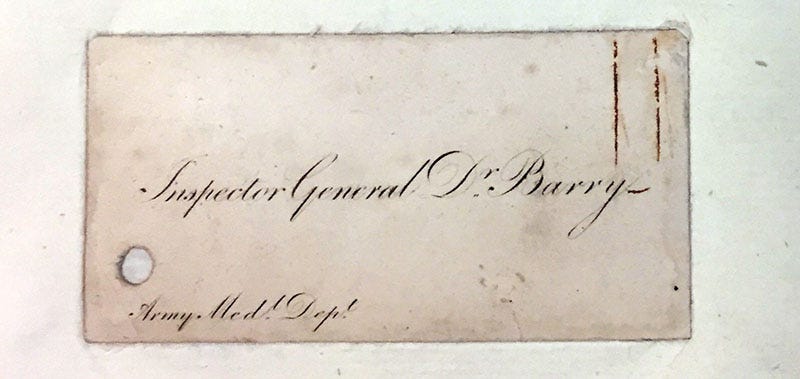 Inspector General Dr. Barry
Army Medl. Dept.